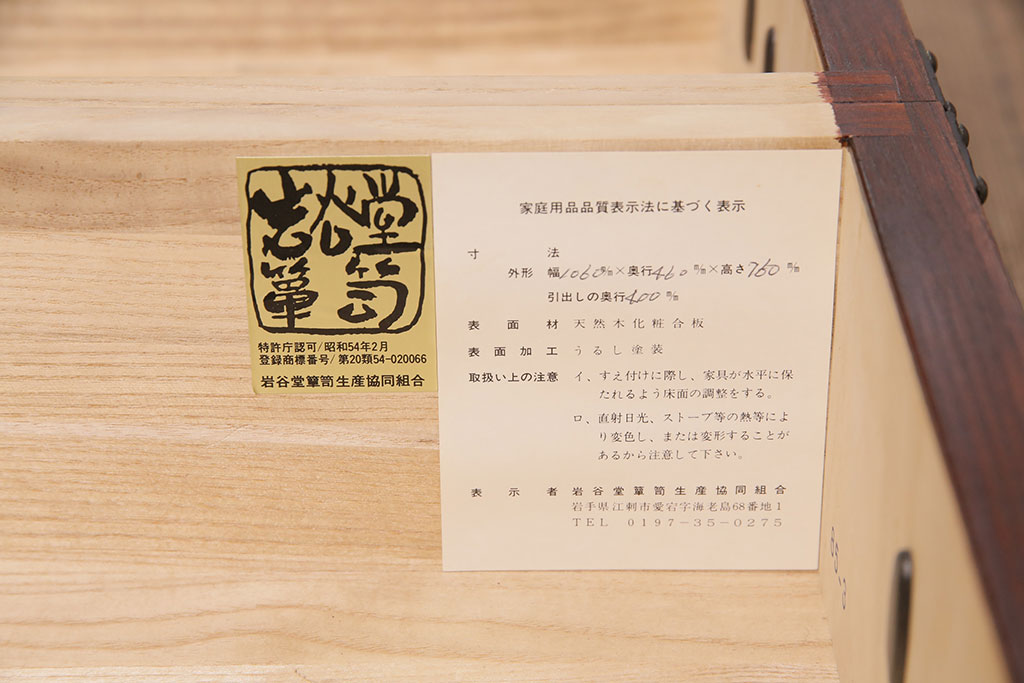 岩谷堂
箪笥
特許庁認可/昭和54年2月
登録商標番号/第20類54-020066
岩谷堂簞笥生産協同組合
家庭用品品質表示法に基づく表示
寸法
外形 幅1060㎜×奥行460㎜×高さ760㎜
引出しの奥行400㎜
表面材 天然木化粧合板
表面加工 うるし塗装
取扱い上の注意 イ、すえ付けに際し、家具が水平に保
たれるよう床面の調整をする。
ロ、直射日光、ストーブ等の熱等によ
り変色し、または変形することが
あるから注意して下さい。
表示者 岩谷堂簞笥生産協同組合
岩手県江刺市愛宕字海老島68番地1
TEL 0197-35-0275